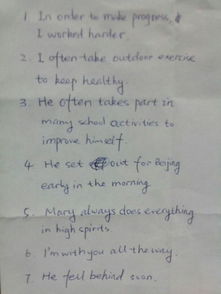 1 In order to make progress,
I worked harder.
2. I often take outdoor exercise
to keep healthy.
3. He often takes part in
many school activities to
improve himself.
4 He set out for Beijing
early in the morning
5. Mary always does everything
in high spirits.
6. I'm with you all the way.
7. He fell behind soon.